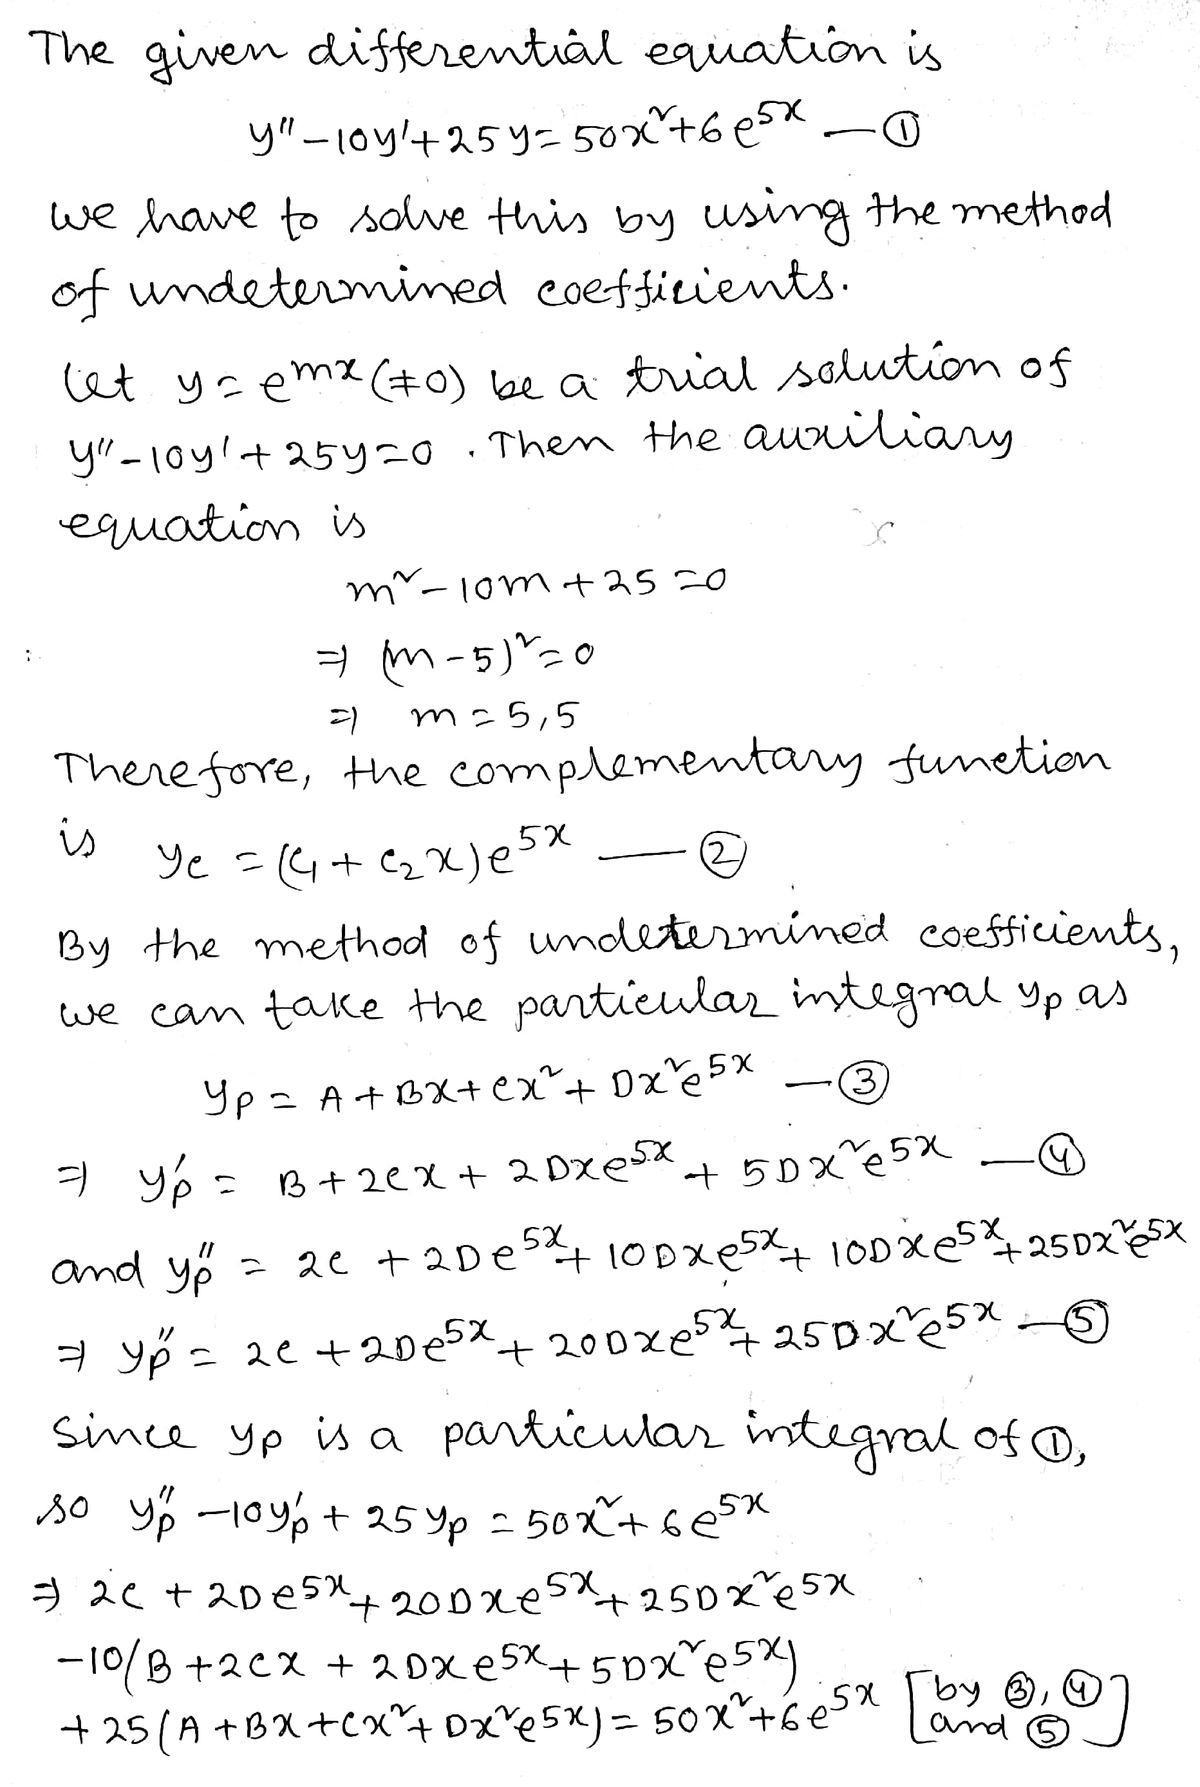 The given differential equation is
y'' - 10y' + 25y = 50x² + 6e^5x — ①
we have to solve this by using the method
of undetermined coefficients.
Let y = e^mx (≠0) be a trial solution of
y'' - 10y' + 25y = 0 . Then the auxiliary
equation is
m² - 10m + 25 = 0
⇒ (m - 5)² = 0
⇒ m = 5, 5
Therefore, the complementary function
is y_c = (C₁ + C₂x)e^5x — ②
By the method of undetermined coefficients,
we can take the particular integral y_p as
y_p = A + Bx + Cx² + Dx²e^5x — ③
⇒ y_p' = B + 2Cx + 2Dxe^5x + 5Dx²e^5x — ④
and y_p'' = 2C + 2De^5x + 10Dxe^5x + 10Dxe^5x + 25Dx²e^5x
⇒ y_p'' = 2C + 2De^5x + 20Dxe^5x + 25Dx²e^5x — ⑤
Since y_p is a particular integral of ①,
so y_p'' - 10y_p' + 25y_p = 50x² + 6e^5x
⇒ 2C + 2De^5x + 20Dxe^5x + 25Dx²e^5x
-10(B + 2Cx + 2Dxe^5x + 5Dx²e^5x)
+ 25(A + Bx + Cx² + Dx²e^5x) = 50x² + 6e^5x [by ③, ④ and ⑤]